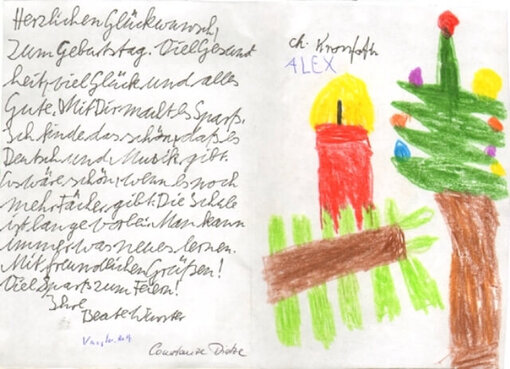 Herzlichen Glückwunsch,
zum Geburtstag. Viel Gesund
heit, viel Glück und alles
Gute. Mit Dir macht es Spaß.
Ich finde das schön, daß es
Deutsch und Musik gibt.
Es wäre schön, wenn es noch
mehr Fächer gibt. Die Schule
ist lange vorbei. Man kann
immer was neues lernen.
Mit freundlichen Grüßen!
Viel Spaß zum Feiern!
Ihre
Beate Wurster
Constanze Dietze
ch.
ALEX